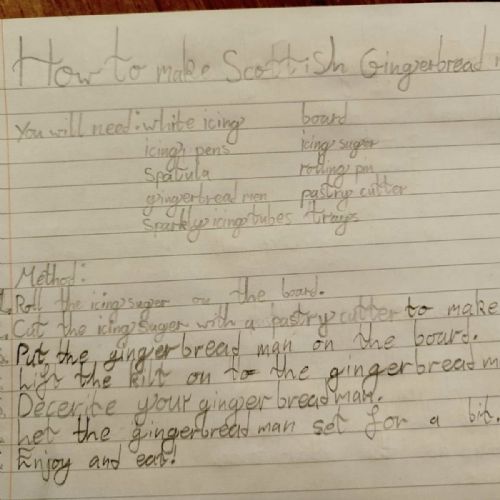 How to make Scottish Gingerbread
You will need: white icing board
icing pens icing suger
Spatula rolling pin
gingerbread men pastry cutter
Sparkly icing tubes trays
Method:
1. Roll the icing suger on the board.
Cut the icing suger with a pastry cutter to make
Put the gingerbread man on the board.
Lift the kilt on to the gingerbread m
Decerite your gingerbread man.
Let the gingerbread man set for a bit.
Enjoy and eat!